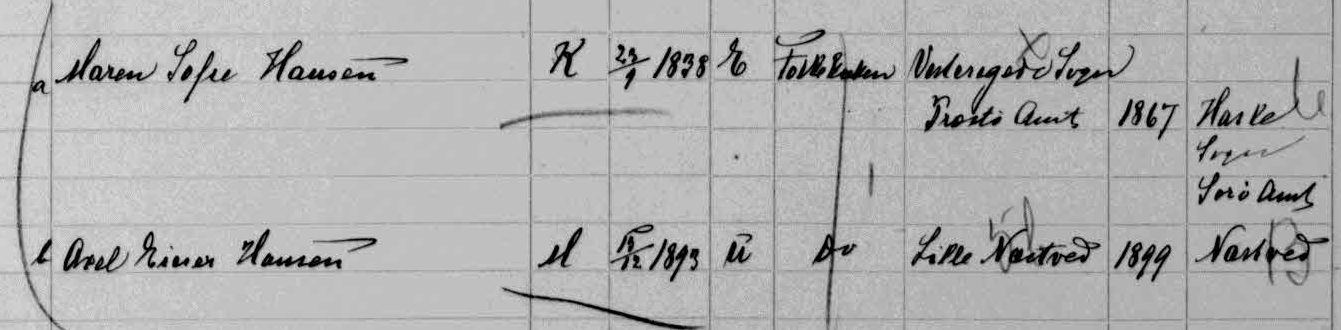 a Maren Sofie Hansen K 22/9 1838 E Folkekirken Vesteregede Sogn
Præstö Amt 1867 Harke
Sogn
Sorö Amt
b Axel Einer Hansen M 19/12 1893 U Do Lille Næstved 1899 Næstved